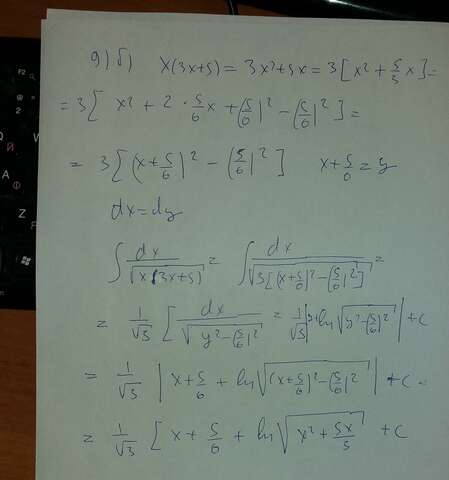 9) б) x(3x+5) = 3x²+5x = 3[x² + 5/3 x] =
= 3[ x² + 2 · 5/6 x + (5/6)² − (5/6)² ] =
= 3[ (x+5/6)² − (5/6)² ] x+5/6 = y
dx = dy
∫ dx/√(x(3x+5)) = ∫ dx/√(3[(x+5/6)² − (5/6)²]) =
= 1/√3 ∫ dx/√(y² − (5/6)²) = 1/√3 |y + ln √(y² − (5/6)²)| + c
= 1/√3 | x + 5/6 + ln √((x+5/6)² − (5/6)²) | + c =
= 1/√3 [ x + 5/6 + ln √(x² + 5x/3) + c